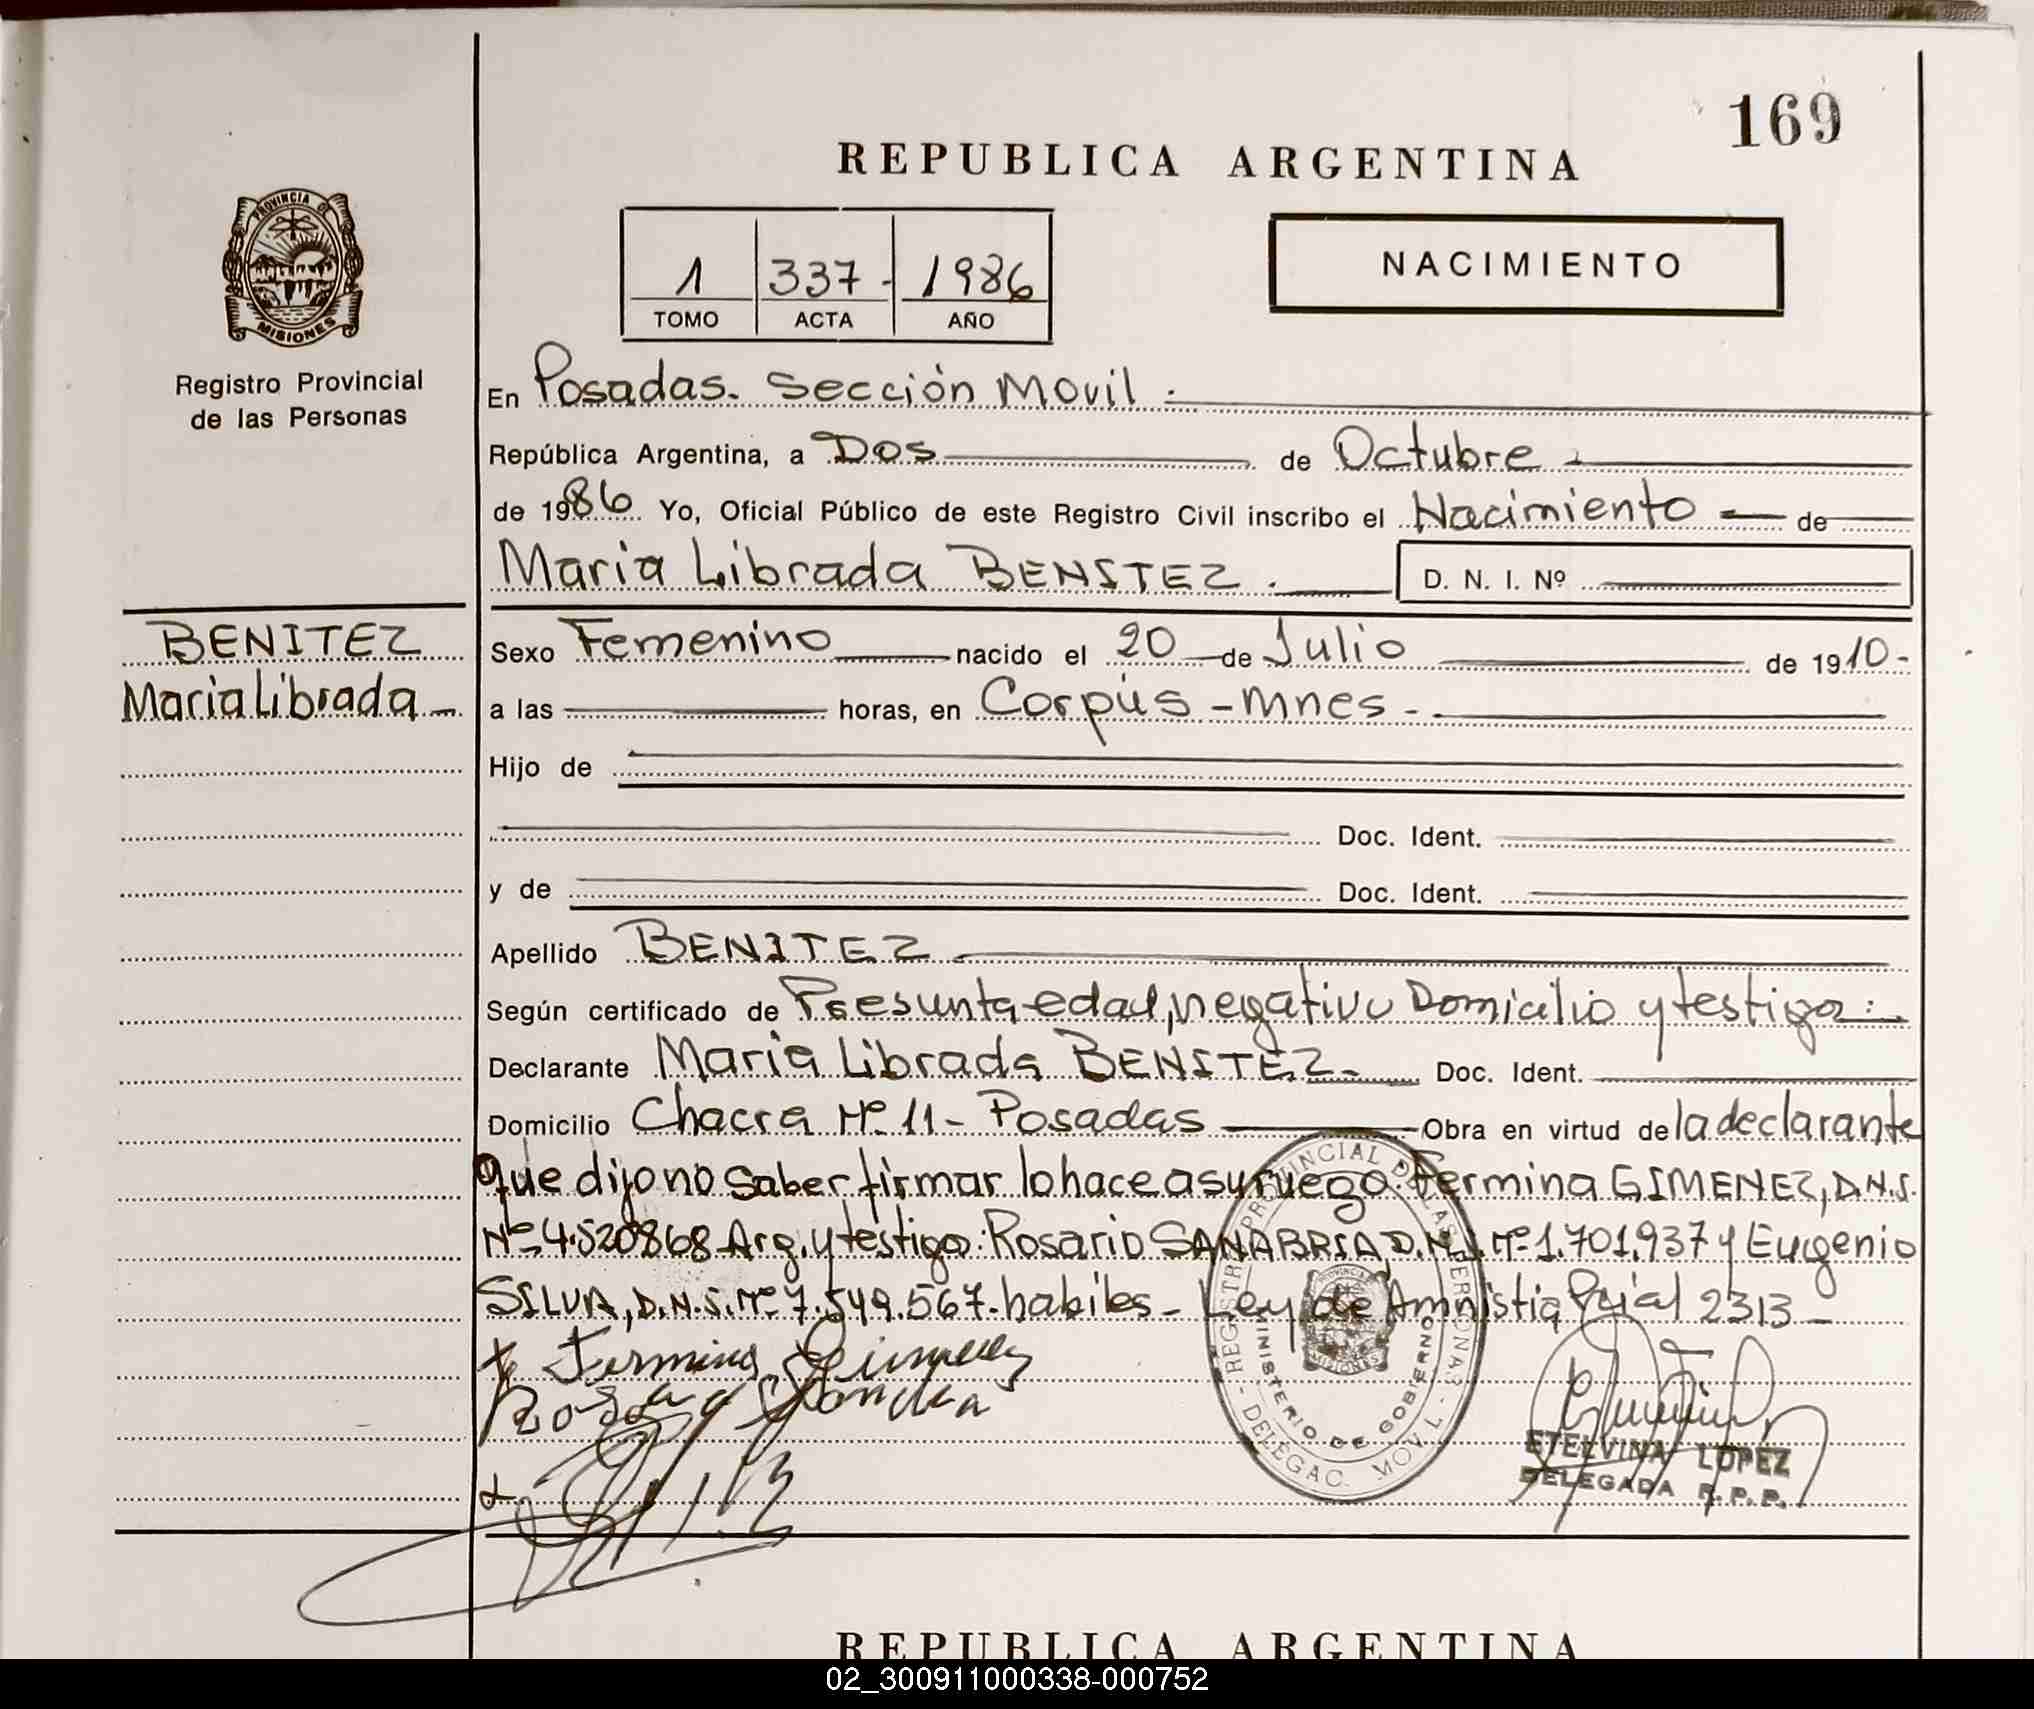 169
REPUBLICA ARGENTINA
PROVINCIA DE
MISIONES
1 337- 1986
TOMO ACTA AÑO
NACIMIENTO
Registro Provincial
de las Personas
En Posadas. Sección Movil.
República Argentina, a Dos de Octubre
de 1986 Yo, Oficial Público de este Registro Civil inscribo el Nacimiento de
Maria Librada BENITEZ. D. N. I. Nº
BENITEZ
Maria Librada
Sexo Femenino nacido el 20 de Julio de 1910-
a las horas, en Corpus - Mnes -
Hijo de
Doc. Ident.
y de Doc. Ident.
Apellido BENITEZ
Según certificado de Presunta edad, negativo Domicilio y testigo:
Declarante Maria Librada BENITEZ- Doc. Ident.
Domicilio Chacra Nº 11 - Posadas Obra en virtud de la declarante
que dijo no saber firmar lo hace a su ruego: Fermina GIMENEZ, D.N.I.
Nº 4.520868 Arg. y testigo: Rosario SANABRIA D.N.I. Nº 1.701.937 y Eugenio
SILVA, D.N.I. Nº 7.549.567. habiles - Ley de Amnistia Pcial 2313
Fermina Gimenez
REGISTRO PROVINCIAL DE LAS PERSONAS - DELEGAC. MOVIL -
MINISTERIO DE GOBIERNO
PROVINCIA
MISIONES
ETELVINA LOPEZ
DELEGADA R.P.P.
REPUBLICA ARGENTINA
02_300911000338-000752